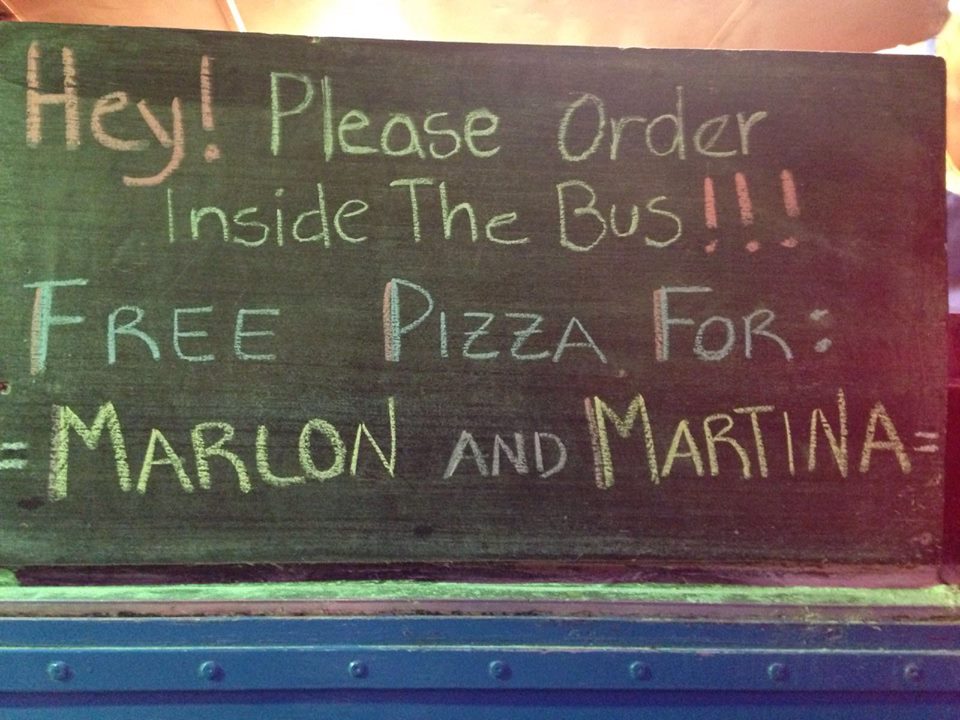 Hey! Please Order
Inside The Bus!!!
FREE PIZZA FOR:
=MARLON AND MARTINA=